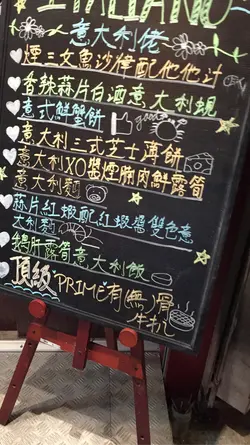 ITALIANO
意大利佬
煙三文魚沙律配他他汁
香辣蒜片白酒煮大利蜆
意式鮮蟹餅 good
意大利三式芝士薄餅
意大利XO醬煙脾肉鮮露筍
意大利麵
蒜片紅蝦配紅蝦醬雙色意
大利麵
鵝肝露筍意大利飯
頂級"PRIME有(無)骨
牛扒